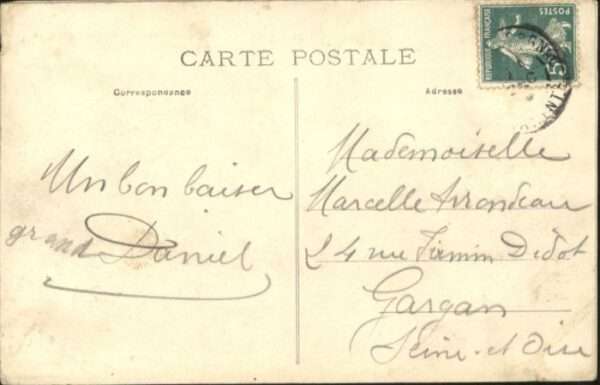 CARTE POSTALE
Correspondance
Adresse
RÉPUBLIQUE FRANÇAISE
POSTES
5
Un bon baiser
grand Daniel
Mademoiselle
Marcelle Arrondeau
24 rue Firmin Didot
Gargan
Seine-et-Oise